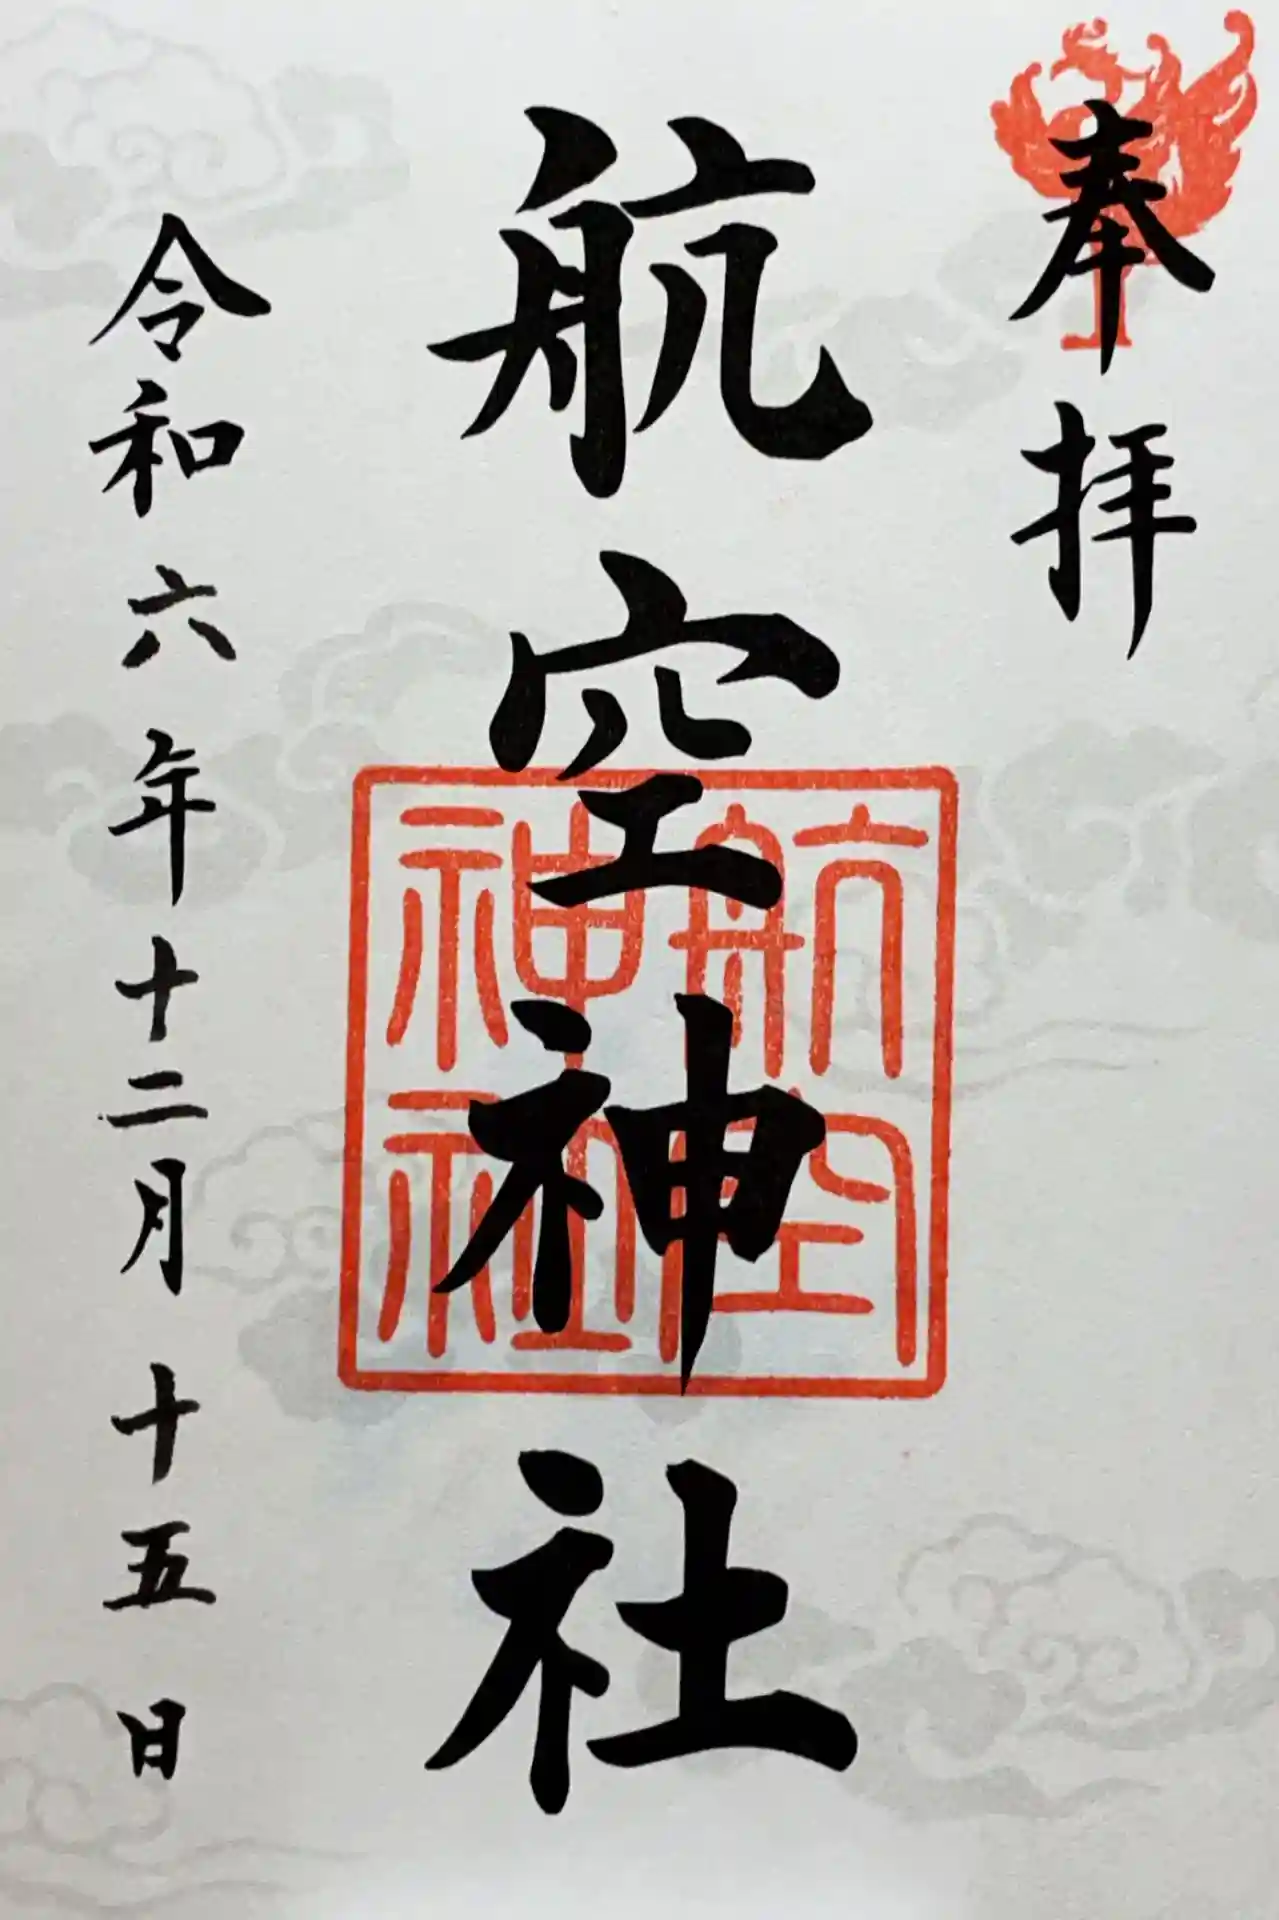 奉拝
航空神社
航空
神社
令和六年十二月十五日